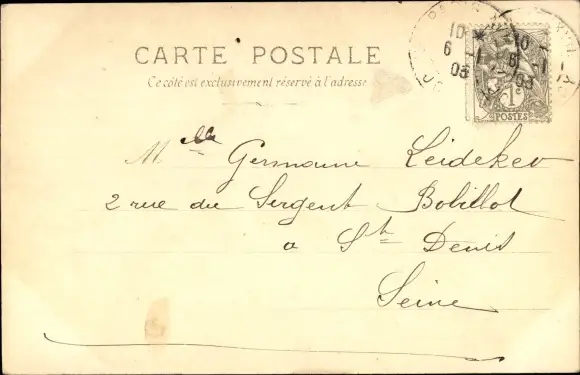 CARTE POSTALE
Ce côté est exclusivement réservé à l'adresse
PARIS
10
6 -1
03
10
6 -1
03
1c
POSTES
Mlle Germaine Leideker
2 rue du Sergent Bobillot
à St Denis
Seine